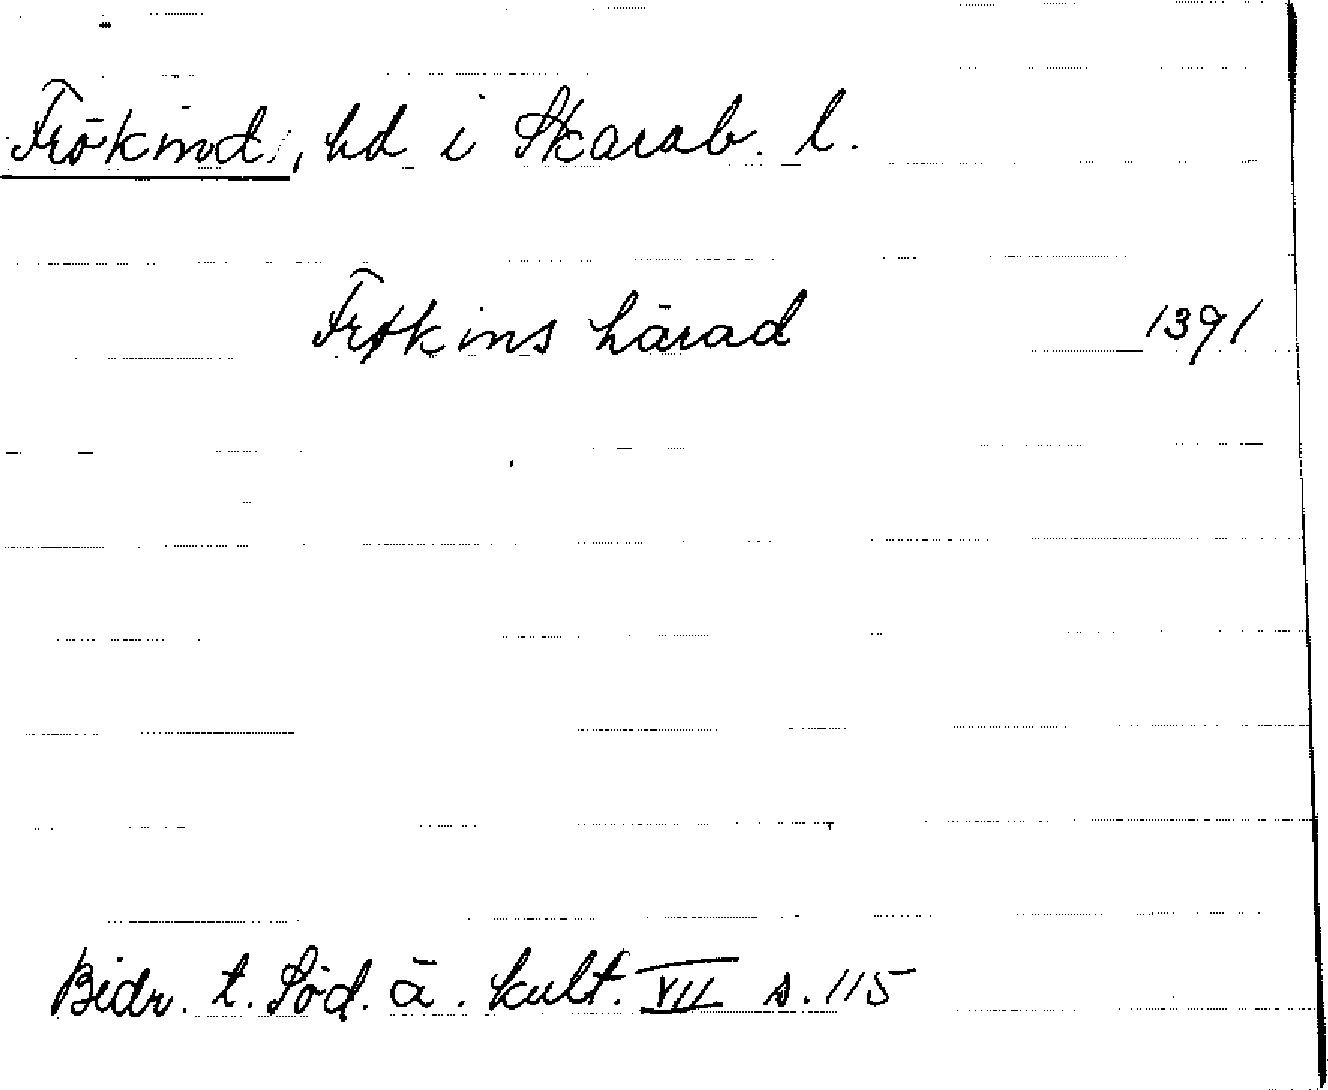 Frökind, hd i Skarab. l.
Frøkins härad 1391
Bidr. t. Söd. ä. kult. VII s. 115